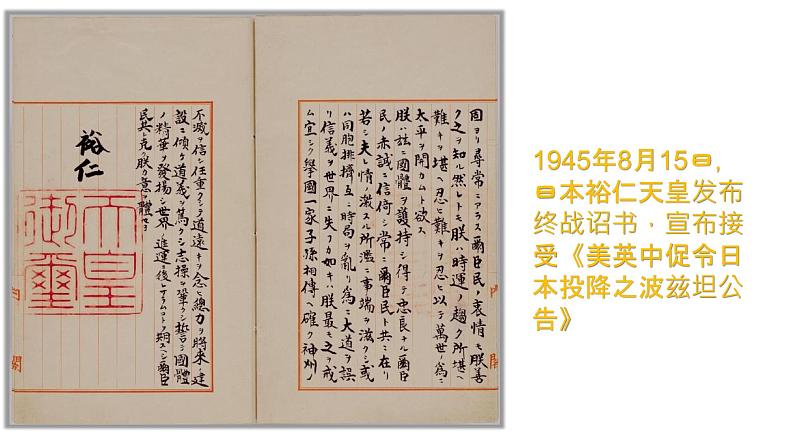 固ヨリ尋常ニアラス爾臣民ノ衷情モ朕善
ク之ヲ知ル然レトモ朕ハ時運ノ趨ク所堪ヘ
難キヲ堪ヘ忍ヒ難キヲ忍ヒ以テ萬世ノ爲ニ
太平ヲ開カムト欲ス
朕ハ茲ニ國體ヲ護持シ得テ忠良ナル爾臣
民ノ赤誠ニ信倚シ常ニ爾臣民ト共ニ在リ
若シ夫レ情ノ激スル所濫ニ事端ヲ滋クシ或
ハ同胞排擠互ニ時局ヲ亂リ爲ニ大道ヲ誤
リ信義ヲ世界ニ失フカ如キハ朕最モ之ヲ戒
ム宜シク擧國一家子孫相傳ヘ確ク神州ノ
不滅ヲ信シ任重クシテ道遠キヲ念ヒ總力ヲ將來ノ建
設ニ傾ケ道義ヲ篤クシ志操ヲ鞏クシ誓テ國體
ノ精華ヲ發揚シ世界ノ進運ニ後レサラムコトヲ期スヘシ爾臣
民其レ克ク朕カ意ヲ體セヨ
裕仁
天皇
御璽
1945年8月15日,
日本裕仁天皇发布
终战诏书，宣布接
受《美英中促令日
本投降之波兹坦公
告》